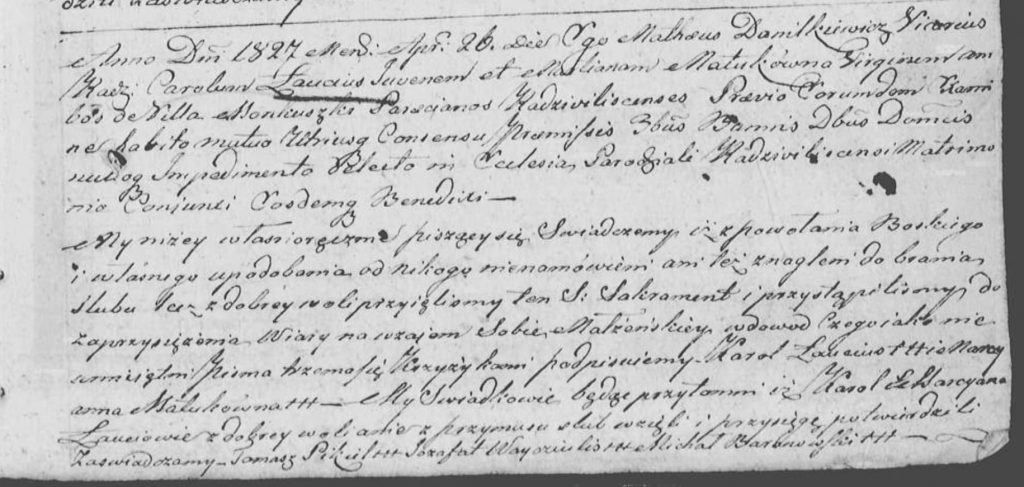 Anno Dni 1827 Mens: Apr: 26. die Ego Mathæus Danilkiewicz Vicarius
Radz: Carolum Laucius Juvenem et Marianam Matukówna Virginem am
bos de Villa Monkuszki Paræcianos Radziviliscenses Prævio Eorumdem Exami
ne habito mutuo Utriusq Consensu Præmissis 3bus Bannis Dbus Domcis
nulloq Impedimento Detecto in Ecclesia Parochiali Radziviliscensi Matrimo
nio Conjunxi Eosdemq Benedixi —
My niżey własnoręcznie piszący się Swiadczemy iż z powołania Boskiego
i własnego upodobania od nikogo nienamówieni ani też znagleni do brania
ślubu lecz z dobrey woli przyięliśmy ten S: Sakrament i przystąpiliśmy do
zaprzysiężenia Wiary na wzajem Sobie Małżeńskiey w dowod czego iako nie
umieiętni Pisma trzema się Krzyżykami podpisuiemy — Karol Laucius +++ i Marcy
anna Matukówna +++ — My Swiadkowie będąc przytomni iż Karol i Marcyana
Lauciowie z dobrey woli a nie z przymusu slub wzięli i przysięgę potwierdzili
Zaświadczamy — Tomasz Pikiel +++ Jozafat Wayczulis +++ Michał Baranowski +++ —